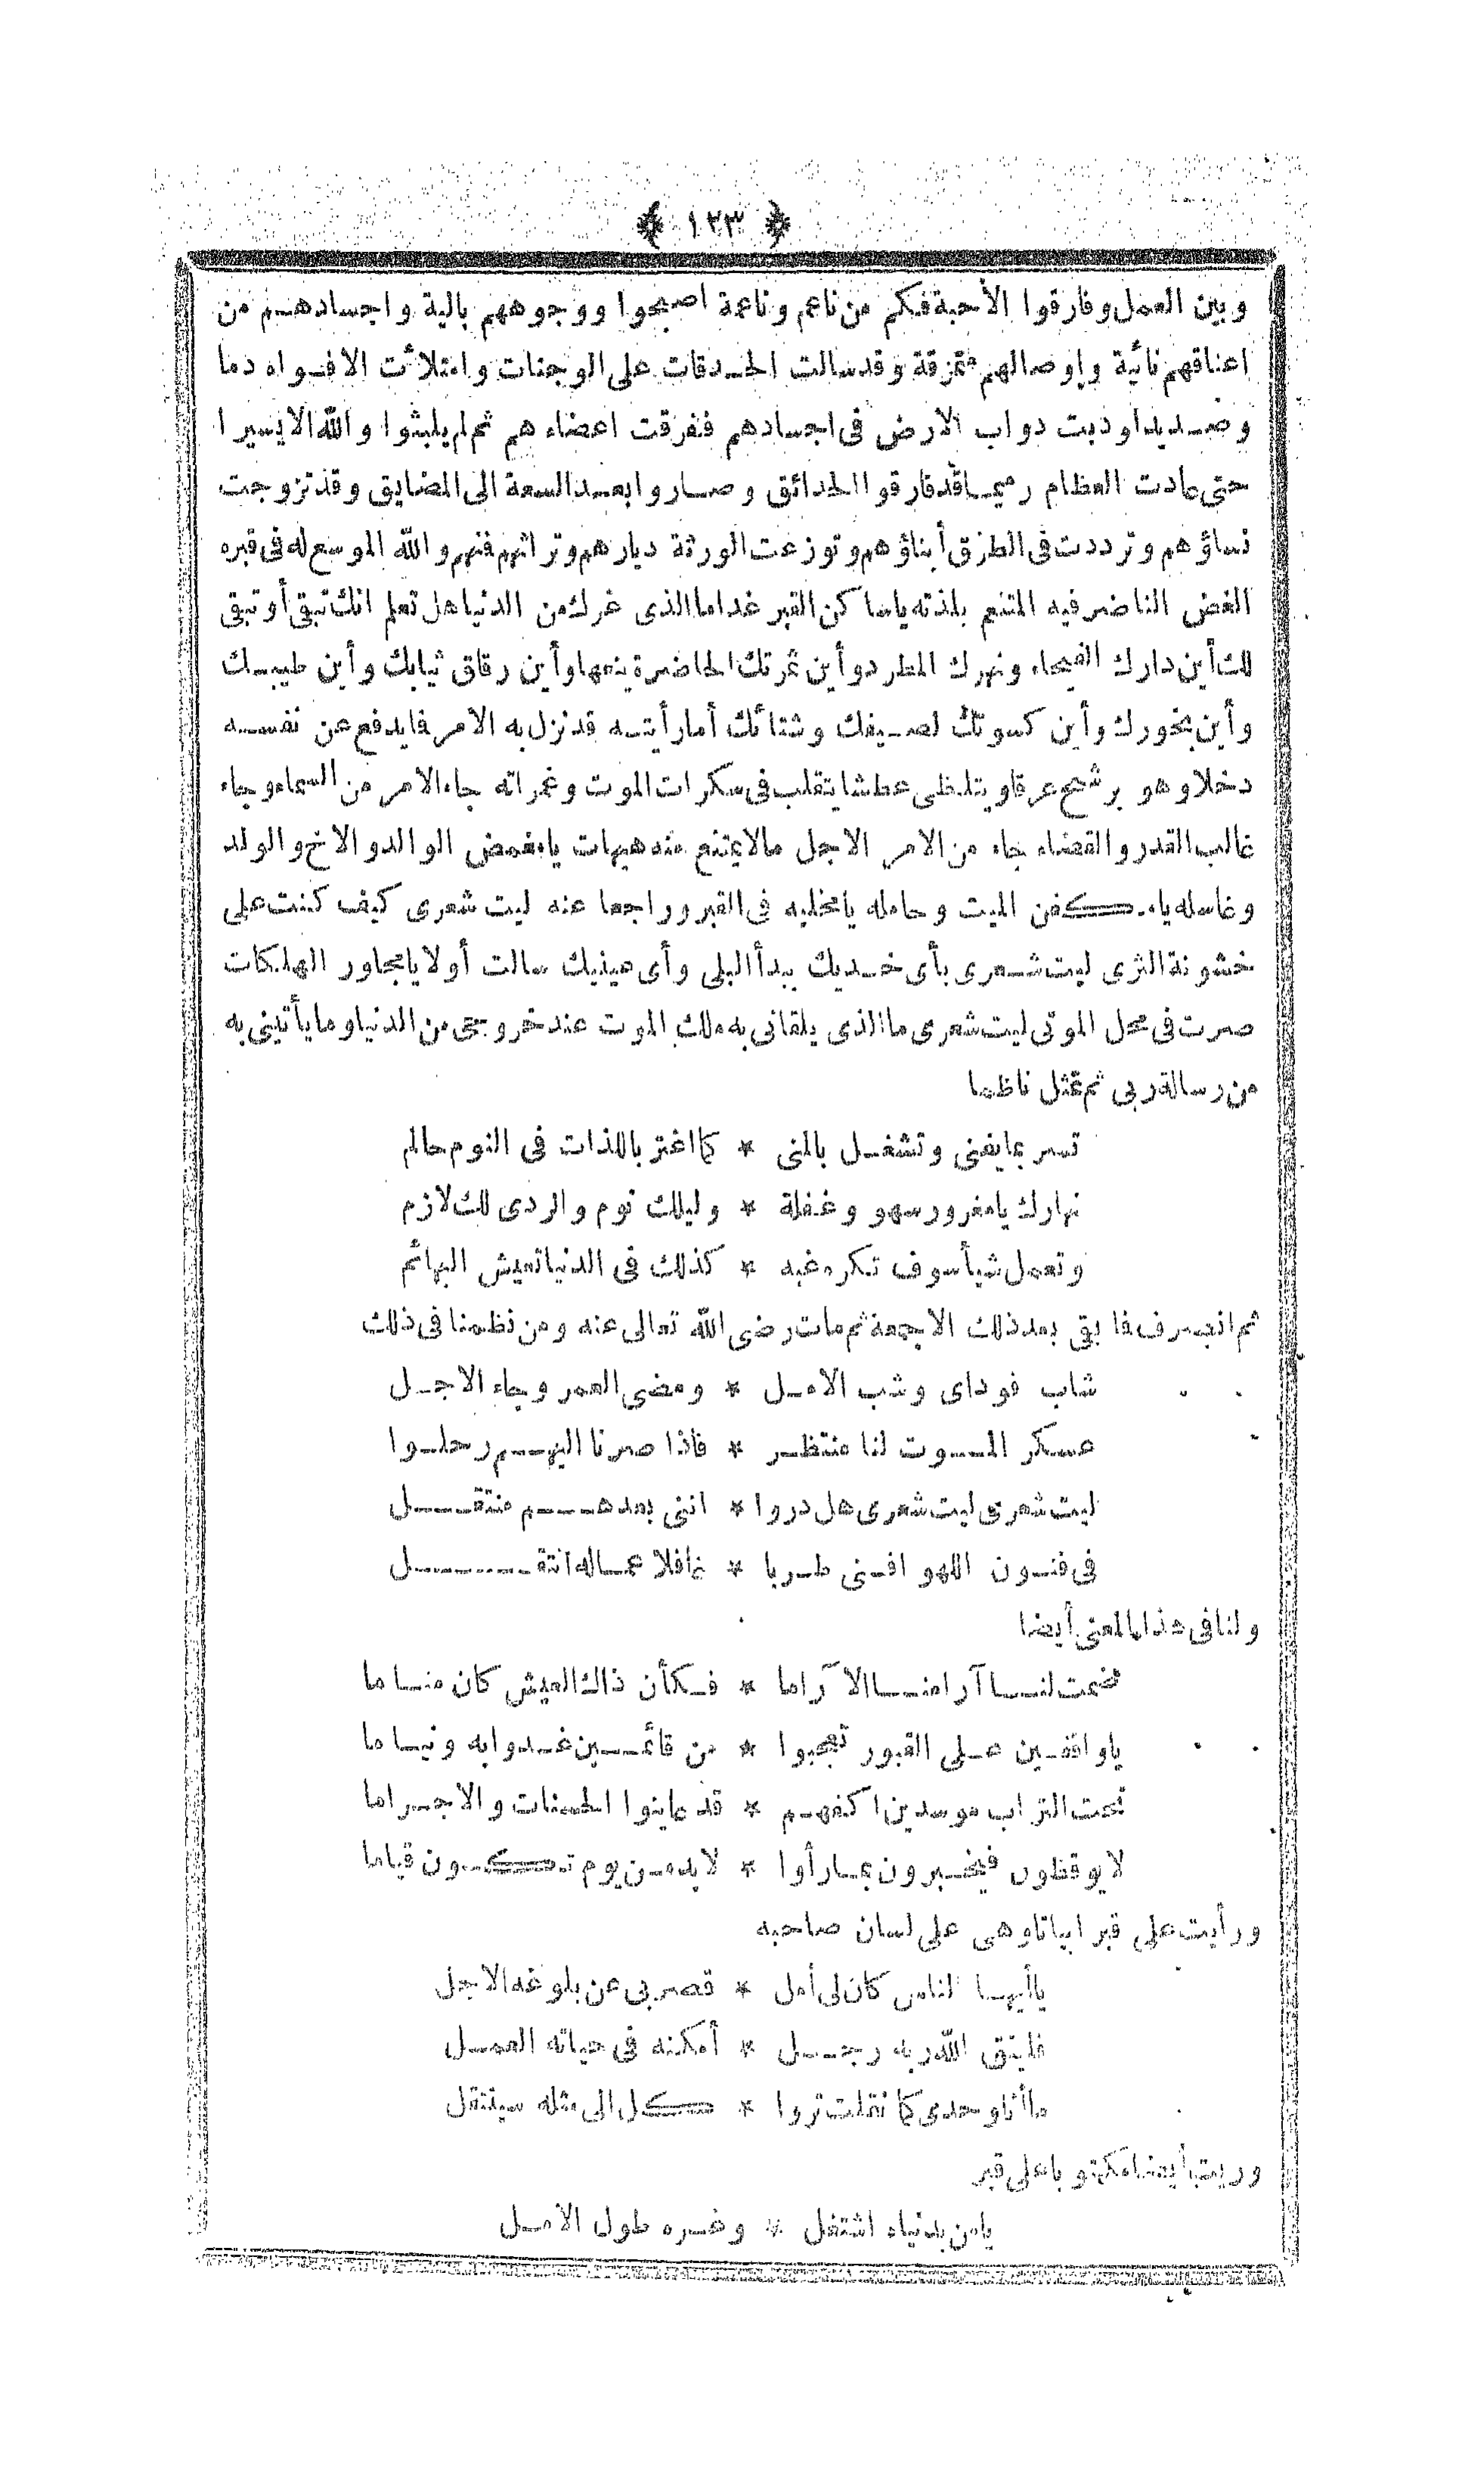 ﴿ ١٢٣ ﴾
وبين العمل وفارقوا الأحبة فكم من ناعم وناعمة اصبحوا ووجوههم بالية واجسادهم من
اعناقهم نائية واوصالهم متمزقة وقد سالت الحدقات على الوجنات وامتلأت الافواه دما
وصديدا ودبت دواب الارض فى اجسادهم ففرقت اعضاءهم ثم لم يلبثوا والله الا يسيرا
حتى عادت العظام رميما قد فارقوا الحدائق وصاروا بعد السعة الى المضايق وقد تزوجت
نساؤهم وترددت فى الطرق أبناؤهم وتوزعت الورثة ديارهم وتراثهم فنهم والله الموسع له فى قبره
الغض الناضر فيه المتنعم بلذته ياساكن القبر غدا ما الذى غرك من الدنيا هل تعلم انك تبقى أو تبقى
لك أين دارك الفيحاء ونهرك المطرد وأين ثمرتك الحاضرة ينعها وأين رقاق ثيابك وأين طيبك
وأين بخورك وأين كسوتك لصيفك وشتائك أما رأيته قد نزل به الامر فما يدفع عن نفسه
دخلا وهو يرشح عرقا ويتلظى عطشا يتقلب فى سكرات الموت وغمراته جاء الامر من السماء وجاء
غالب القدر والقضاء جاء من الامر الاجل مالا يمتنع منه هيهات يامغمض الوالد والاخ والولد
وغاسله يامكفن الميت وحامله يامخليه فى القبر وراجعا عنه ليت شعرى كيف كنت على
خشونة الثرى ليت شعرى بأى خديك يبدأ البلى وأى عينيك سالت أولا يامجاور الهلكات
صرت فى محل الموتى ليت شعرى ما الذى يلقانى به ملك الموت عند خروجى من الدنيا وما يأتينى به
من رسالة ربى ثم تمثل ناظما
تسر بما يفنى وتشغل بالمنى * كما اغتر باللذات فى النوم حالم
نهارك يامغرور سهو وغفلة * وليلك نوم والردى لك لازم
وتعمل شيأ سوف تكره غبه * كذلك فى الدنيا تعيش البهائم
ثم انصرف فما بقى بعد ذلك الا جمعة ثم مات رضى الله تعالى عنه ومن نظمنا فى ذلك
شاب فوداى وشب الامل * ومضى العمر وجاء الاجل
عسكر الموت لنا منتظر * فاذا صرنا اليهم رحلوا
ليت شعرى ليت شعرى هل دروا * اننى بعدهم منتقل
فى فنون اللهو افنى طربا * غافلا عما له انتقل
ولنا فى هذا المعنى أيضا
ضمت لنا آرامنا الآراما * فكأن ذاك العيش كان مناما
ياواقفين على القبور تعجبوا * من قائمين غدوا به ونياما
تحت التراب موسدين اكفهم * قد عاينوا الحسنات والاجراما
لا يوقظون فيخبرون بما رأوا * لابد من يوم تكون قياما
ورأيت على قبر ابياتا وهى على لسان صاحبه
ياأيها الناس كان لى أمل * قصر بى عن بلوغه الاجل
فليتق الله ربه رجل * أمكنه فى حياته العمل
ما أنا وحدى كما نقلت تروا * كل الى مثله سينتقل
وريت أيضا مكتوبا على قبر
يامن بدنياه اشتغل * وغره طول الامل